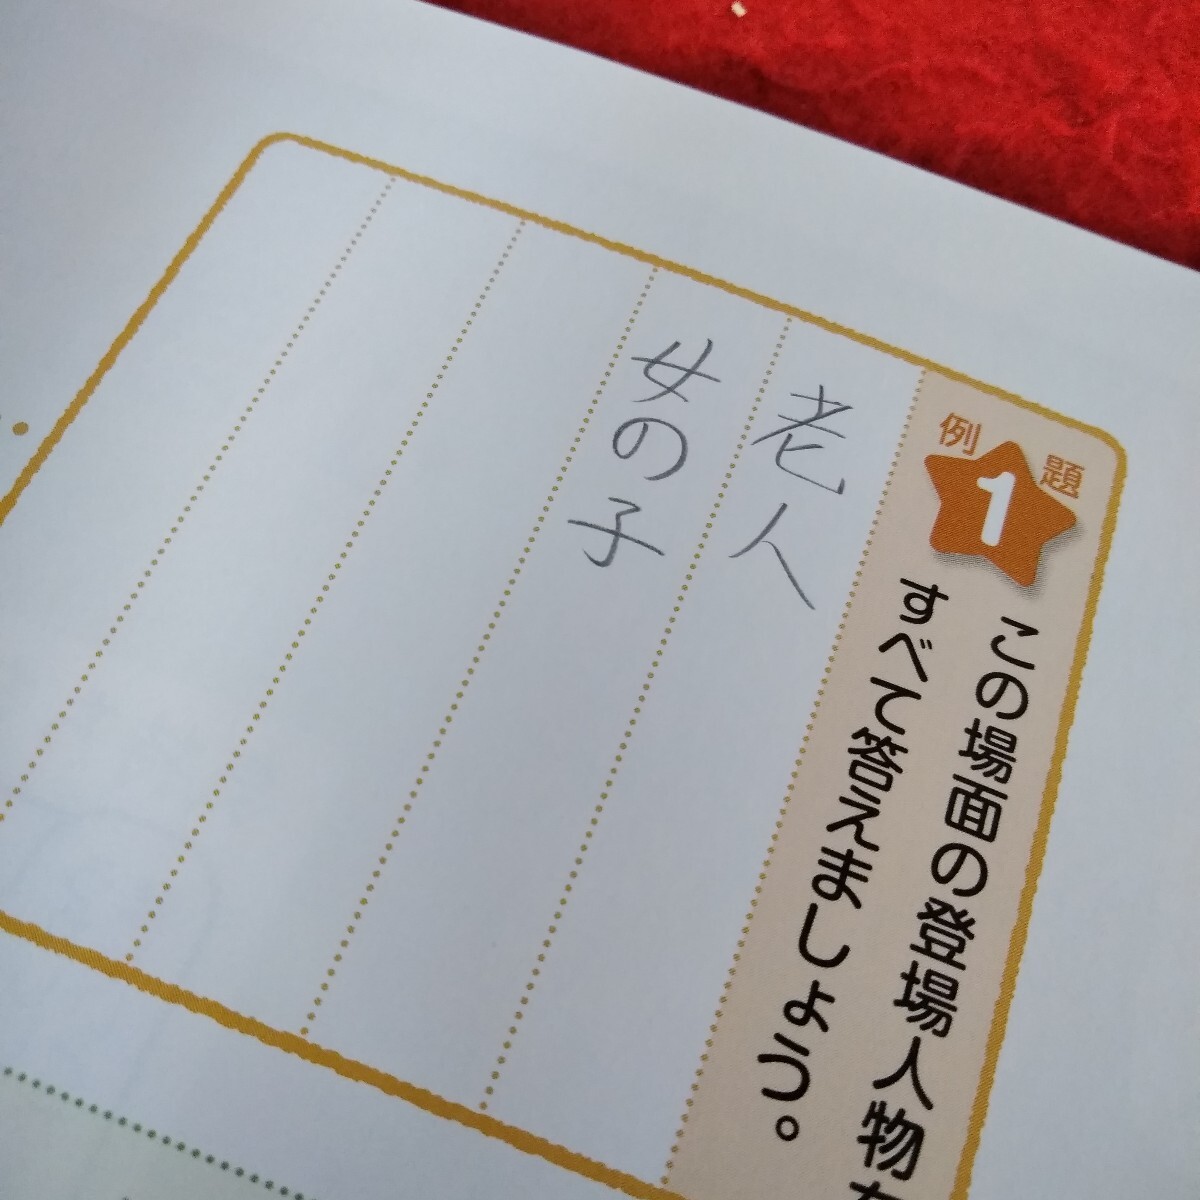 例題
1
この場面の登場人物
すべて答えましょう。
老人
女の子